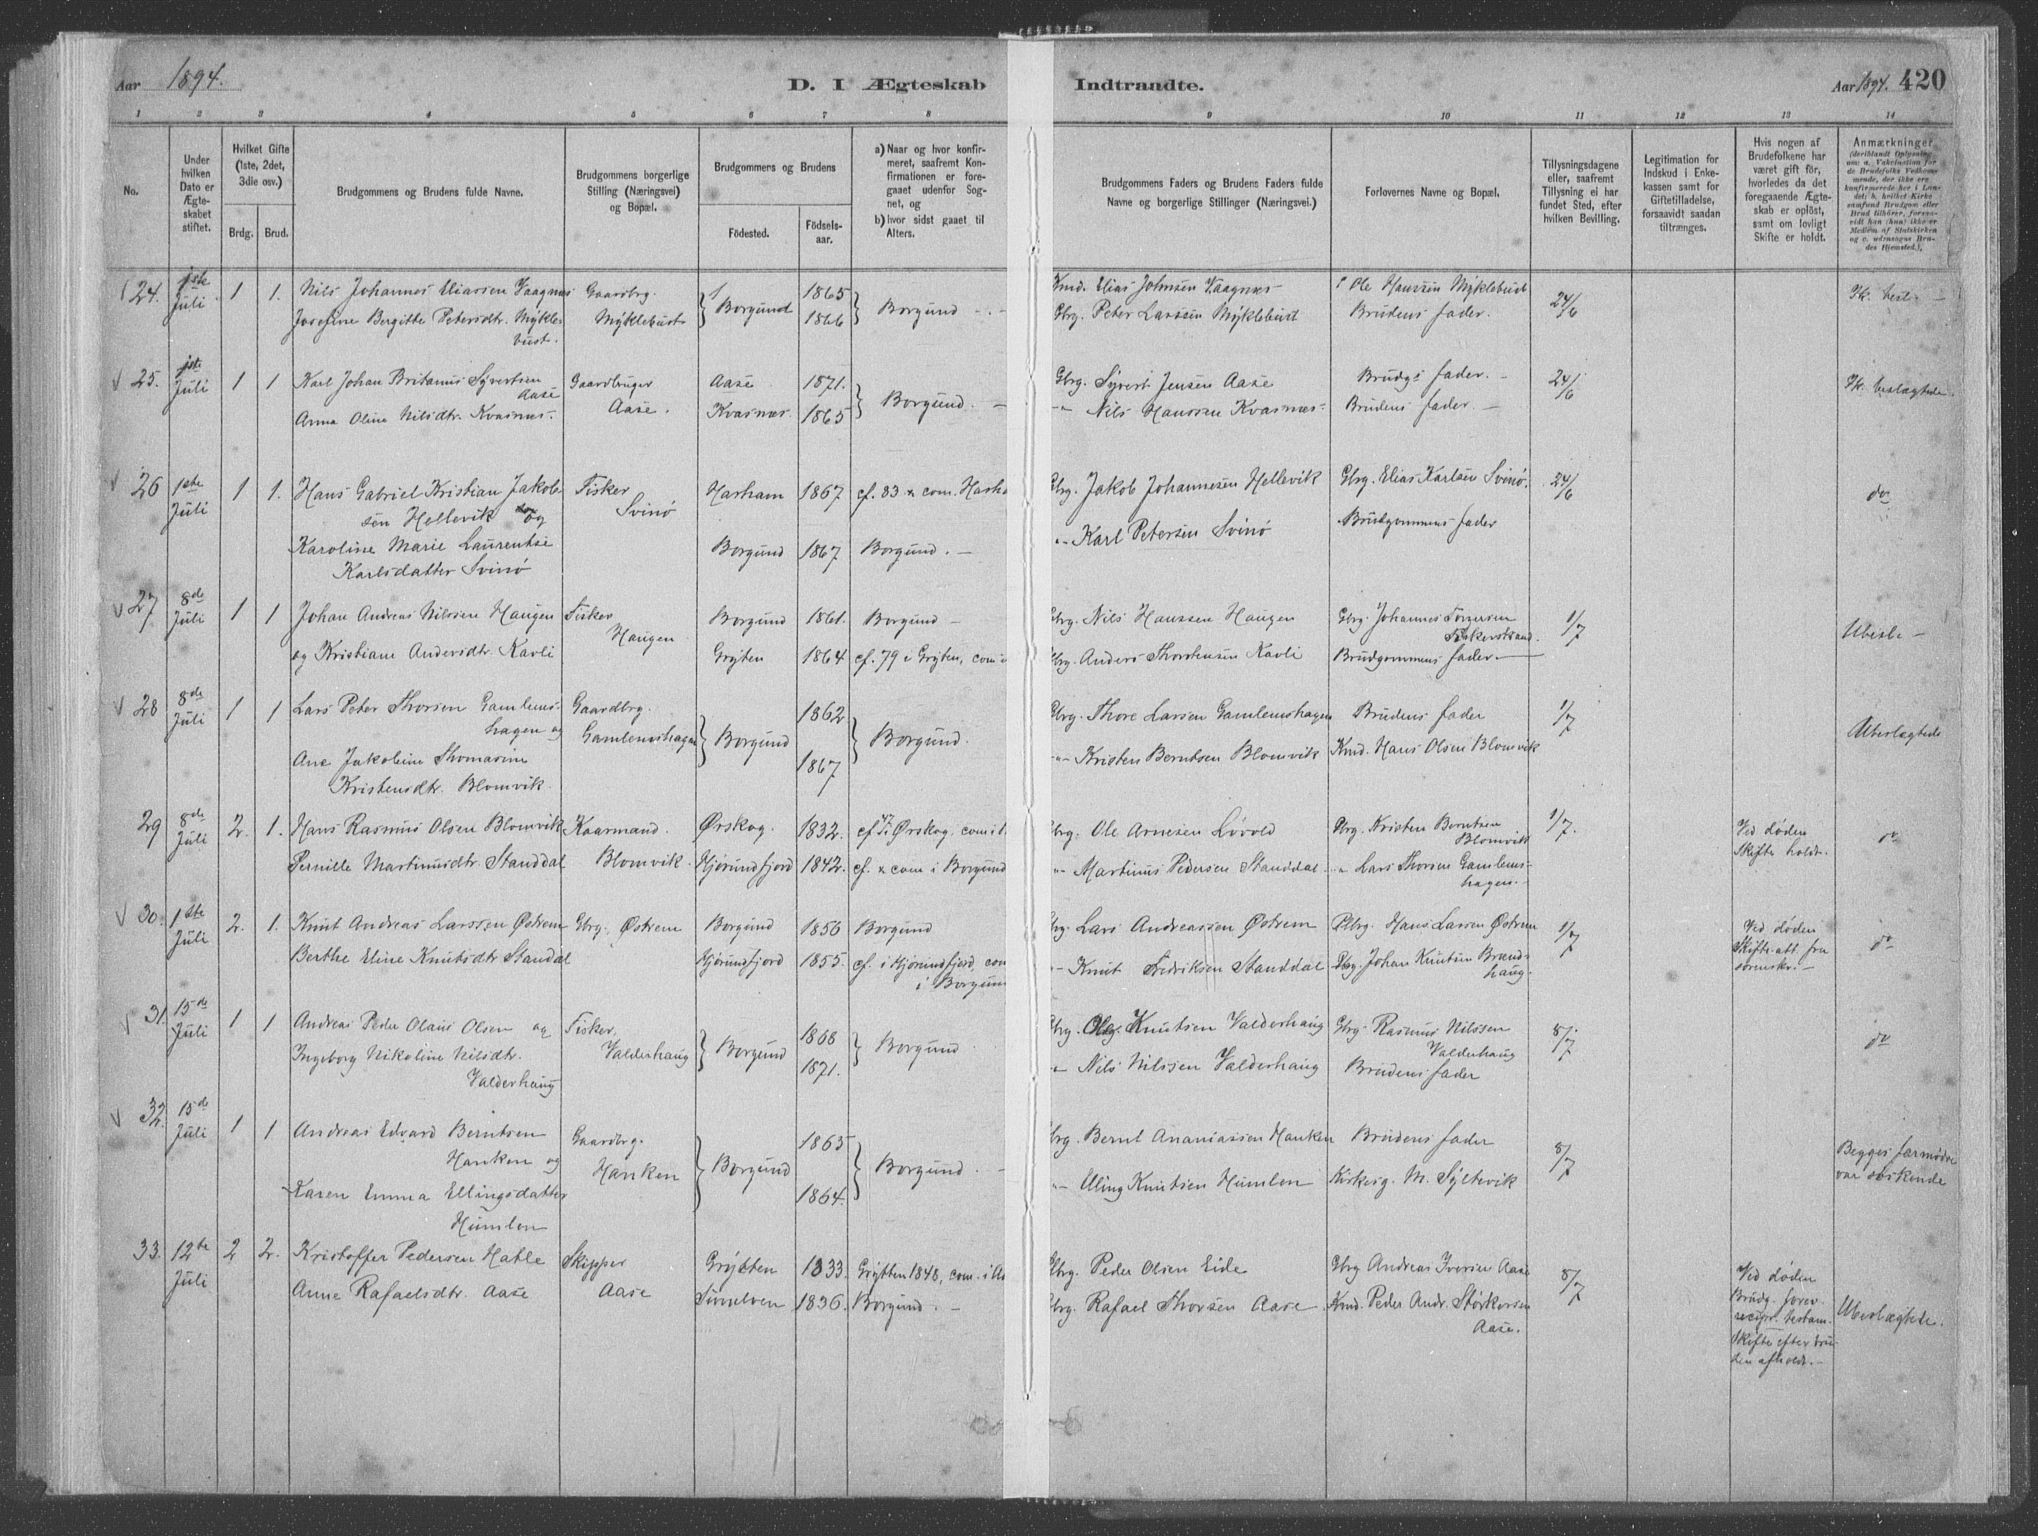 Aar 1894.
D. I Ægteskab Indtrandte.
Aar 1894. 420
1 2 3 4 5 6 7 8 9 10 11 12 13 14
No.
Under hvilken Dato er Ægteskabet stiftet.
Hvilket Gifte (1ste, 2det, 3die osv.)
Brdg. Brud.
Brudgommens og Brudens fulde Navne.
Brudgommens borgerlige Stilling (Næringsvei) og Bopæl.
Brudgommens og Brudens
Födested.
Födselsaar.
a) Naar og hvor konfirmeret, saafremt Konfirmationen er foregaaet udenfor Sognet, og
b) hvor sidst gaaet til Alters.
Brudgommens Faders og Brudens Faders fulde Navne og borgerlige Stillinger (Næringsvei.)
Forlovernes Navne og Bopæl.
Tillysningsdagene eller, saafremt Tillysning ei har fundet Sted, efter hvilken Bevilling.
Legitimation for Indskud i Enkekassen samt for Giftetilladelse, forsaavidt saadan tiltrænges.
Hvis nogen af Brudefolkene har været gift för, hvorledes da det foregaaende Ægteskab er oplöst, samt om lovligt Skifte er holdt.
Anmærkninger
24. 1ste Juli 1 1. Nils Johannes Eliassen Vaagnæs Gaardbrg. Borgund 1865 Borgund Kmd. Elias Johnsen Vaagnæs Ole Hanssen Myklebust 24/6
Josefine Bergitte Petersdtr. Myklebust. Myklebust 1866 Gbrg. Peter Larssen Myklebust Brudens fader.
25. 1ste Juli 1 1 Karl Johan Britanus Syvertsen Aase Gaardbruger Aase 1871. Borgund. Gbrg. Syvert Jensen Aase Brudgs fader. 24/6 Ik. beslægtede.
Anna Oline Nilsdtr. Kvasnæs. Aase. Kvasnæs. 1865 " Nils Hanssen Kvasnæs. Brudens fader.
26 1ste Juli 1 1. Hans Gabriel Kristian Jakobsen Hellevik og Fisker Svinø Harham 1867 cf. 83 & com. Harha Gbrg. Jakob Johannesen Hellevik Gbrg. Elias Karlsen Svinø. 24/6 do
Karoline Marie Laurentse Karlsdatter Svinø Borgund 1867 Borgund. " Karl Petersen Svinø Brudgommens fader
27. 8de Juli 1 1 Johan Andreas Nilssen Haugen Fisker Haugen Borgund 1861. Borgund Gbrg. Nils Hanssen Haugen Gbrg. Johannes Torgersen Fiskerstrand. 1/7
og Kristiane Andersdtr. Kavli Grÿten 1864 cf. 79 i Grÿten, com i Gbrg. Anders Thorsteinsen Kavli Brudgommens fader.
28 8de Juli 1 1 Lars Peter Thorsen Gamlemshagen og Gaardbrg. Gamlemshagen Borgund 1862 Borgund. Gbrg. Thore Larsen Gamlemshagen Brudens fader 1/7 Ubeslægtede
Ane Jakobine Thomasine Kristensdtr. Blomvik. 1867 " Kristen Berntsen Blomvik Kmd. Hans Olsen Blomvik
29 8de Juli 2. 1. Hans Rasmus Olsen Blomvik Kaarmand. Blomvik. Ørskog. 1832. cf. i Ørskog, com i Gbrg. Ole Arnesen Løvold Gbrg. Kristen Berntsen Blomvik 1/7. Ved døden Skifte holdt. do
Pernille Martinusdtr. Standdal Hjörundfjord 1842. cf. & com i Borgund " Martinus Pedersen Standdal. " Lars Thorsen Gamlemshagen.
30. 1ste Juli 2. 1. Knut Andreas Larssen Østrem Gbrg. Østrem Borgund 1856 Borgund Gbrg. Lars Andreassen Østrem Gbrg. Hans Larsen Østrem 1/7 Ved døden Skifte-att fra sorenskr. do
Berthe Eline Knutsdtr Standal Hjörundfjord 1855. cf. i Hjörundfjord, com i Borgund " Knut Fredriksen Standdal Gbrg. Johan Knutsen Brandshaug.
31. 15de Juli 1 1 Andreas Peder Olaus Olsen og Fisker, Valderhaug Borgund 1868 Borgund Gbrg. Ole Knutsen Valderhaug Gbrg. Rasmus Nilssen Valderhaug 8/7 do
Ingeborg Nikoline Nilsdtr. Valderhaug 1871. " Nils Nilssen Valderhaug Brudens fader
32. 15de Juli 1 1 Andreas Edvard Berntsen Hanken og Gaardbrg. Hanken Borgund 1865 Borgund. Gbrg. Bernt Ananiassen Hanken Brudens fader 8/7 Begges farmødre var søskende
Karen Emma Ellingsdatter Humlen 1864. " Elling Knutsen Humlen Kirkesg. M. Syltevik
33. 12te Juli 2 2. Kristoffer Pedersen Hatle Skipper Aase Grytten 1833. Grytten 1848, com. i Gbrg. Peder Olsen Eide Gbrg Andreas Iversen Aase 8/7 Ved døden Brudg. forev. recipr. testam. Skifte efter bruden afholdt. Ubeslægtede.
Anne Rafaelsdtr. Aase Sunelven 1836. Borgund. Gbrg. Rafael Thorsen Aase Kmd. Peder Andr. Størkersen Aase.